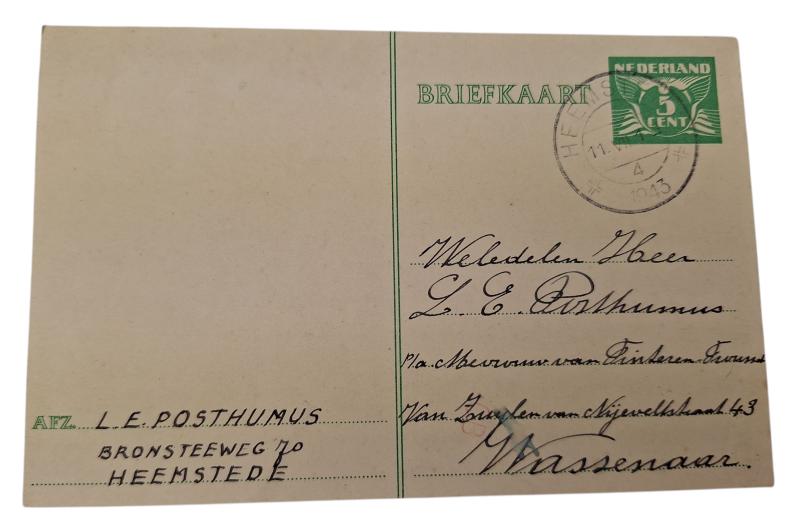 BRIEFKAART
NEDERLAND
5
CENT
HEEMST
11.VII
4
1943
Weledelen Heer
L. E. Posthumus
p/a. Mevrouw van Tinteren
Van Zuylen van Nijeveltstraat 43
Wassenaar.
AFZ. L.E. POSTHUMUS
BRONSTEEWEG 70
HEEMSTEDE